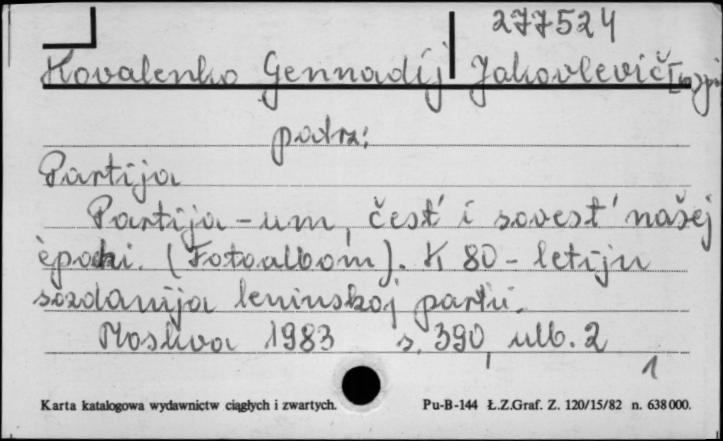 277524
Kovalenko Gennadij Jakovlevič
patrz:
Partija
Partija - um, čest' i sovest' našej
èpochi. (Fotoalbom). K 80-letiju
sozdanija leninskoj partii.
Moskva 1983 s. 390, ulb. 2
1
Karta katalogowa wydawnictw ciągłych i zwartych. Pu-B-144 Ł.Z.Graf. Z. 120/15/82 n. 638000.